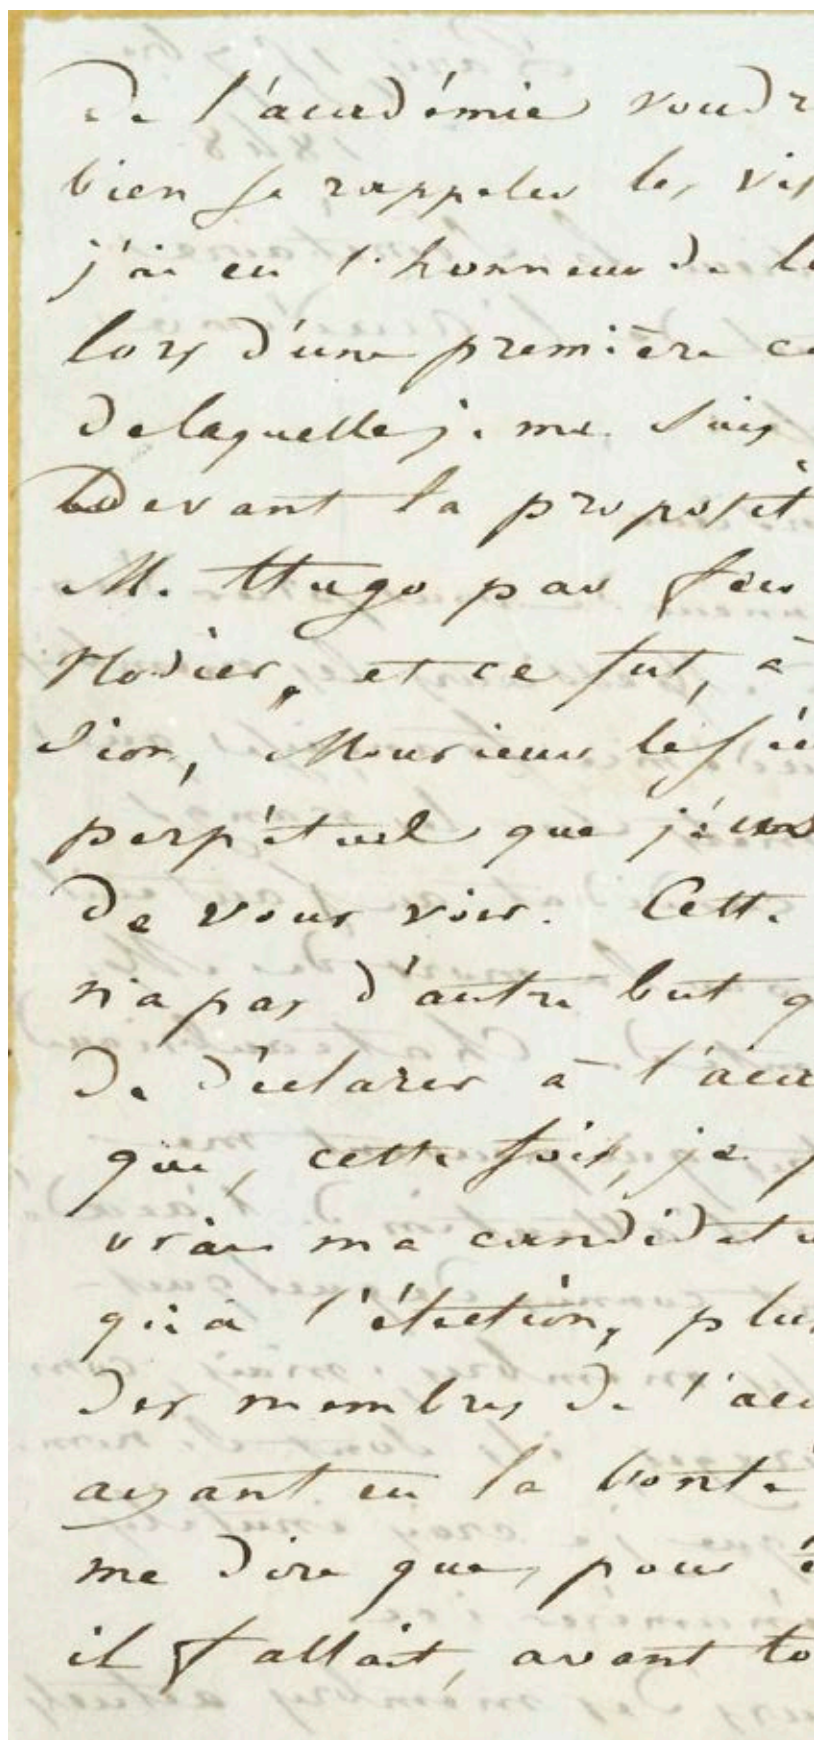 de l'académie voudr
bien se rappeler les vis
j'ai eu l'honneur de le
lors d'une première ca
de laquelle je me suis
devant la proposit
M. Hugo par feu
Nodier, et ce fut, à
sion, Monsieur le sé
perpétuel que j'eus
de vous voir. Cette
n'a pas d'autre but q
de déclarer à l'aca
que, cette fois, je p
vrai ma candidatu
qu'à l'élection, plus
des membres de l'aca
ayant eu la bonté
me dire que, pour ê
il fallait, avant to